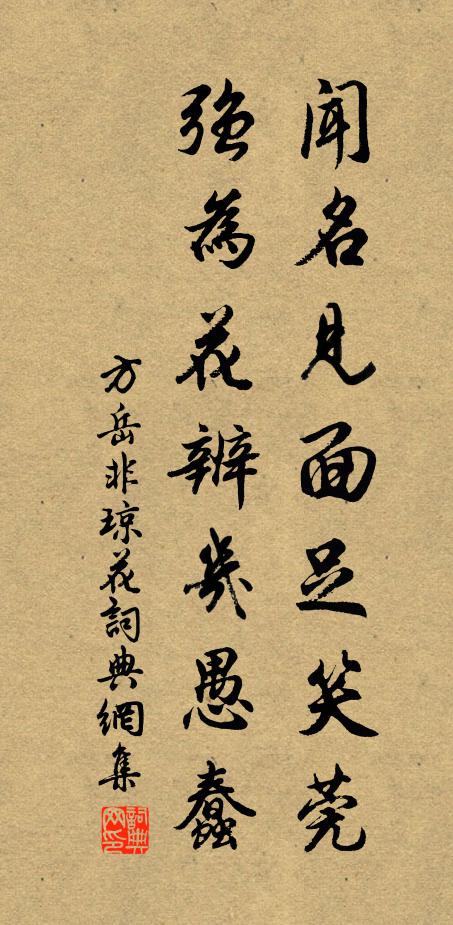 聞名見面足笑莞
強為花辨幾愚蠢
方岳非琼花詞典網集
詞典網印